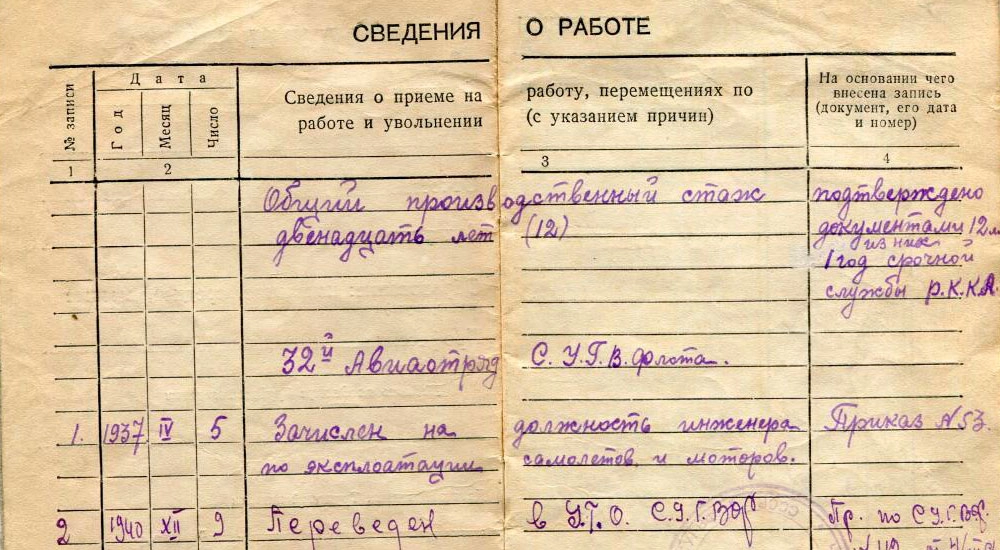 СВЕДЕНИЯ О РАБОТЕ
№ записи
Дата
Год
Месяц
Число
Сведения о приеме на работу, перемещениях по
работе и увольнении (с указанием причин)
На основании чего
внесена запись
(документ, его дата
и номер)
1 2 3 4
Общий производственный стаж
двенадцать лет (12)
подтверждено
документами 12
из них
1 год срочной
службы Р.К.К.А.
32й Авиаотряд С.У.Г.В.Флота.
1. 1937 IV 5 Зачислен на должность инженера Приказ N53.
по эксплоатации самолетов и моторов.
2 1940 XII 9 Переведен в У.Г.О. С.У.Г.ВФ Пр. по С.У.Г.ВФ
СССР